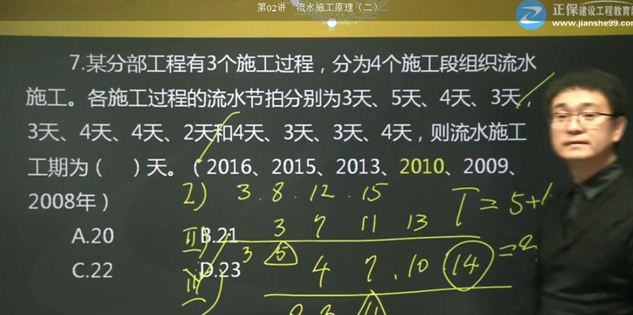 第02讲 流水施工原理(二)
正保建设工程教育网
www.jianshe99.com
7.某分部工程有3个施工过程，分为4个施工段组织流水
施工。各施工过程的流水节拍分别为3天、5天、4天、3天，
3天、4天、4天、2天和4天、3天、3天、4天，则流水施工
工期为（ ）天。（2016、2015、2013、2010、2009、
2008年）
I) 3.8.12.15
T=5+
A.20 II B.21 3 7 11 13
3 5
C.22 III D.23 4 7.10 14 =
11